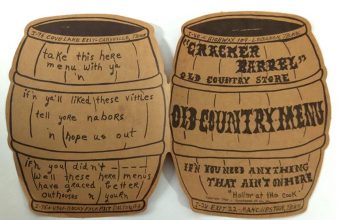 take this here
menu with y'a
'n
if'n ya'll liked these vittles
tell yore nabors
'n hope us out
if'n you didn't
well these here menus
have graced better
outhouses 'n yourn
I-40 & HIGHWAY 109 - LEBANON, TENN.
"CRACKER
BARREL"
OLD COUNTRY STORE
OLD COUNTRY MENU
IF'N YOU NEED ANYTHING
THAT AIN'T ON HERE
"Holler at the cook"